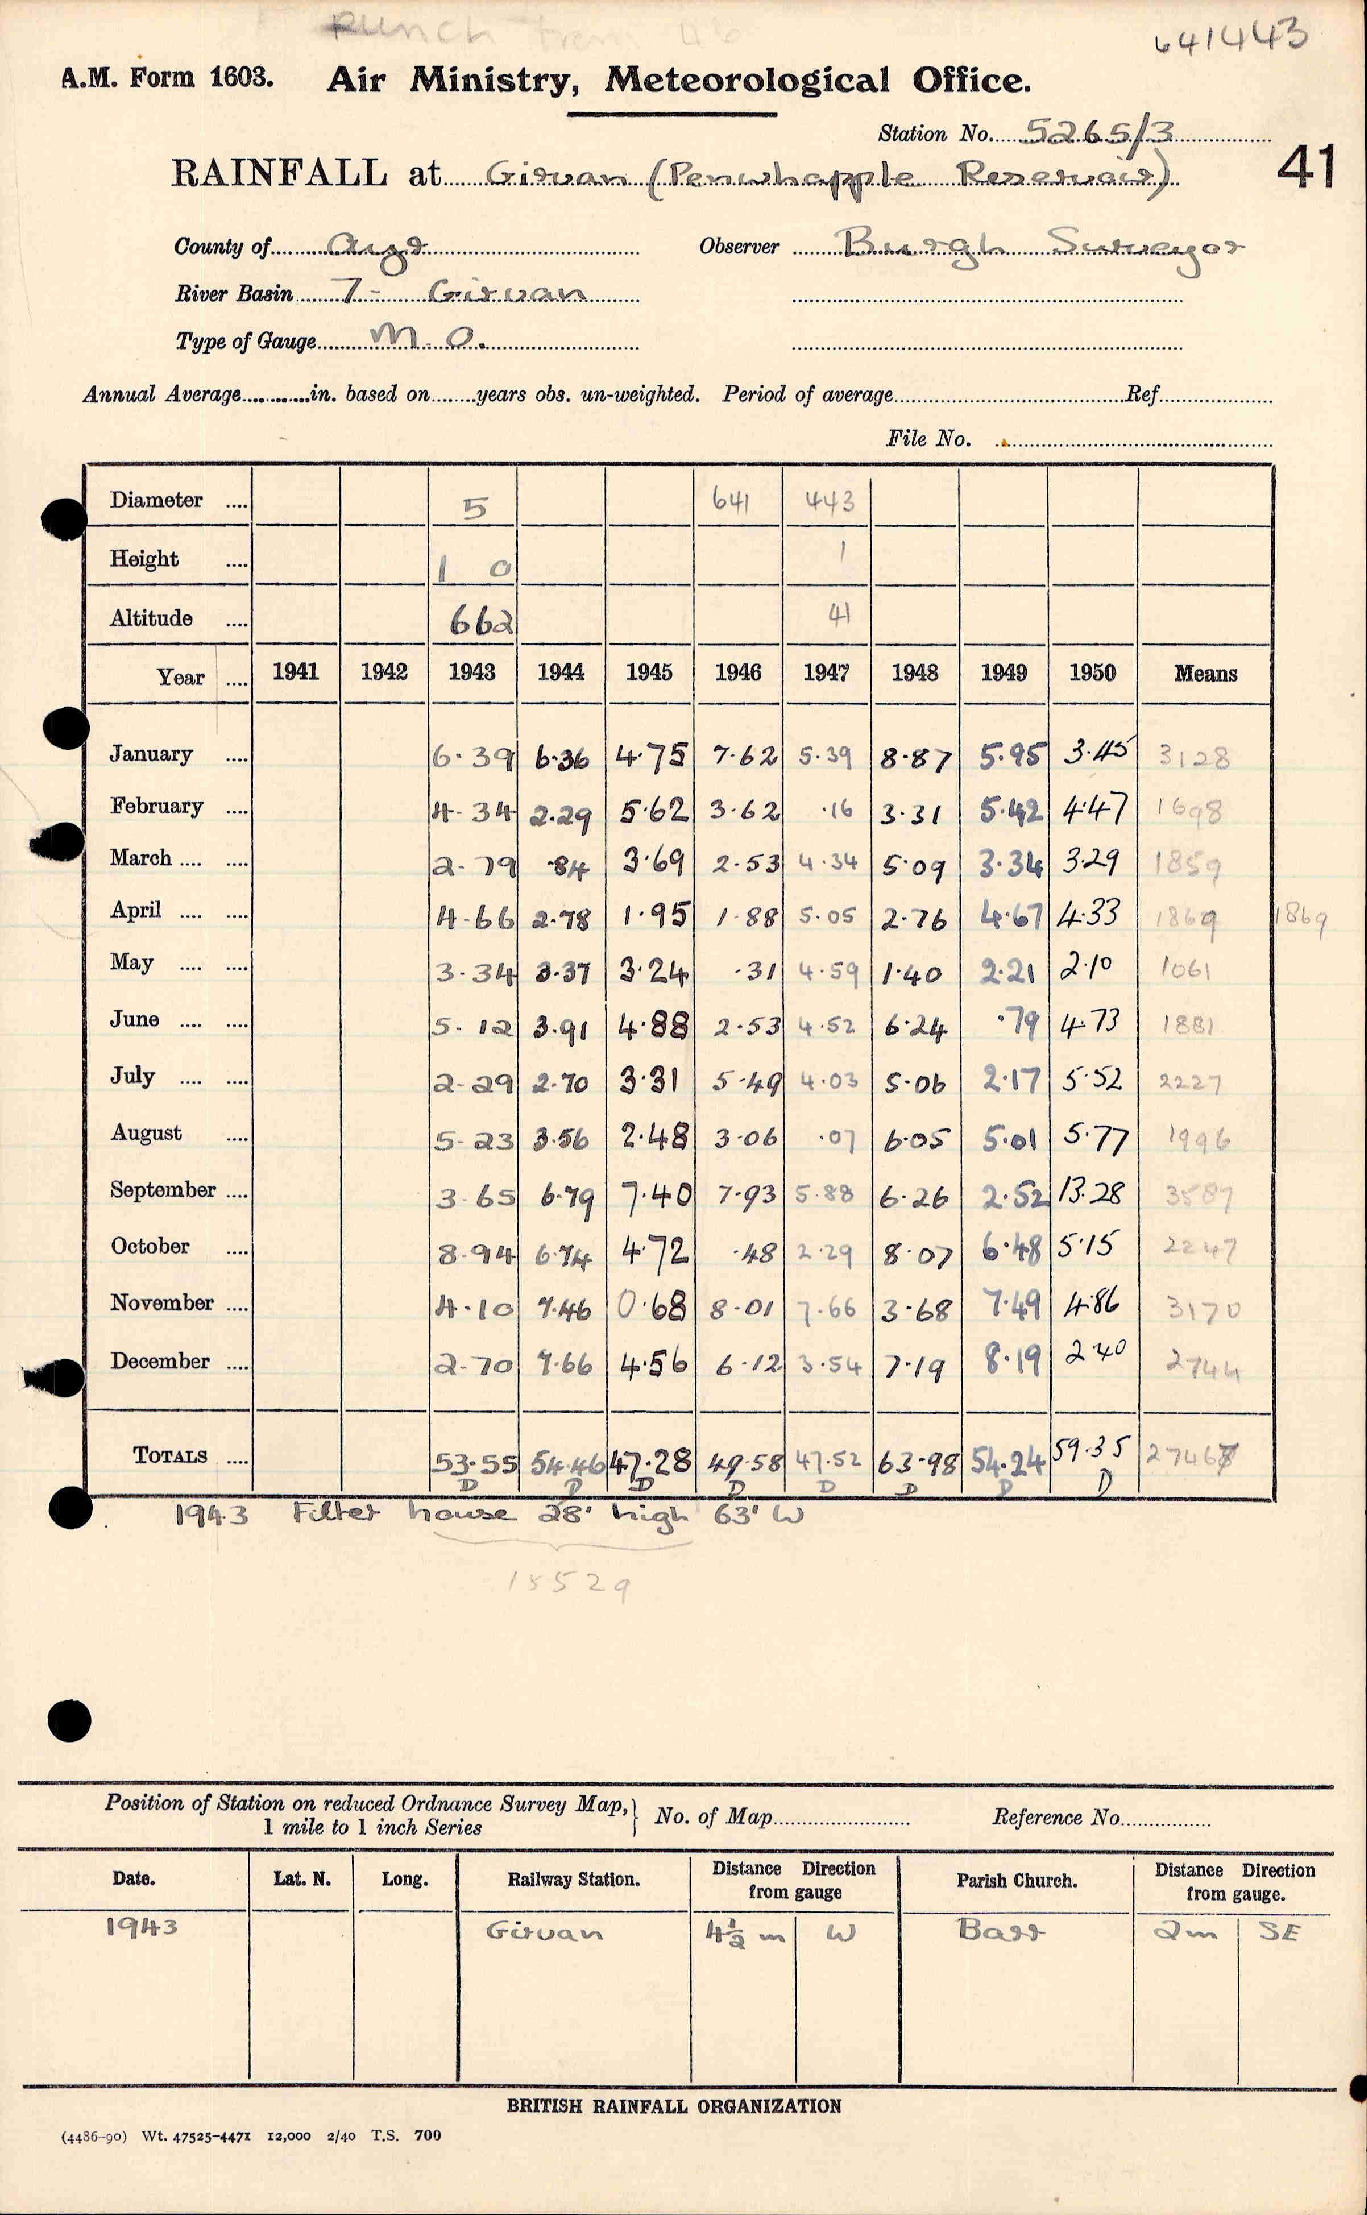 Punch from 46
641443
A.M. Form 1603. Air Ministry, Meteorological Office.
Station No. 5265/3
41
RAINFALL at Girvan (Penwhapple Reservoir)
County of Ayr Observer Burgh Surveyor
River Basin 7 - Girvan
Type of Gauge M.O.
Annual Average in. based on years obs. un-weighted. Period of average Ref
File No.
Diameter 5 641 443
Height 1 0 1
Altitude 662 41
Year 1941 1942 1943 1944 1945 1946 1947 1948 1949 1950 Means
January 6.39 6.36 4.75 7.62 5.39 8.87 5.95 3.45 3128
February 4.34 2.29 5.62 3.62 .16 3.31 5.42 4.47 1698
March 2.79 .84 3.69 2.53 4.34 5.09 3.34 3.29 1859
April 4.66 2.78 1.95 1.88 5.05 2.76 4.67 4.33 1869 1869
May 3.34 3.37 3.24 .31 4.59 1.40 2.21 2.10 1061
June 5.12 3.91 4.88 2.53 4.52 6.24 .79 4.73 1881
July 2.29 2.70 3.31 5.49 4.03 5.06 2.17 5.52 2227
August 5.23 3.56 2.48 3.06 .07 6.05 5.01 5.77 1996
September 3.65 6.79 7.40 7.93 5.88 6.26 2.52 13.28 3587
October 8.94 6.74 4.72 .48 2.29 8.07 6.48 5.15 2247
November 4.10 7.46 0.68 8.01 7.66 3.68 7.49 4.86 3170
December 2.70 7.66 4.56 6.12 3.54 7.19 8.19 2.40 2744
TOTALS 53.55 54.46 47.28 49.58 47.52 63.98 54.24 59.35 27467
D D D D D D D D
1943 Filter house 28' high 63' W
15529
Position of Station on reduced Ordnance Survey Map, 1 mile to 1 inch Series } No. of Map Reference No.
Date. Lat. N. Long. Railway Station. Distance Direction from gauge Parish Church. Distance Direction from gauge.
1943 Girvan 4½ m W Barr 2m SE
BRITISH RAINFALL ORGANIZATION
(4486-90) Wt. 47525-4471 12,000 2/40 T.S. 700